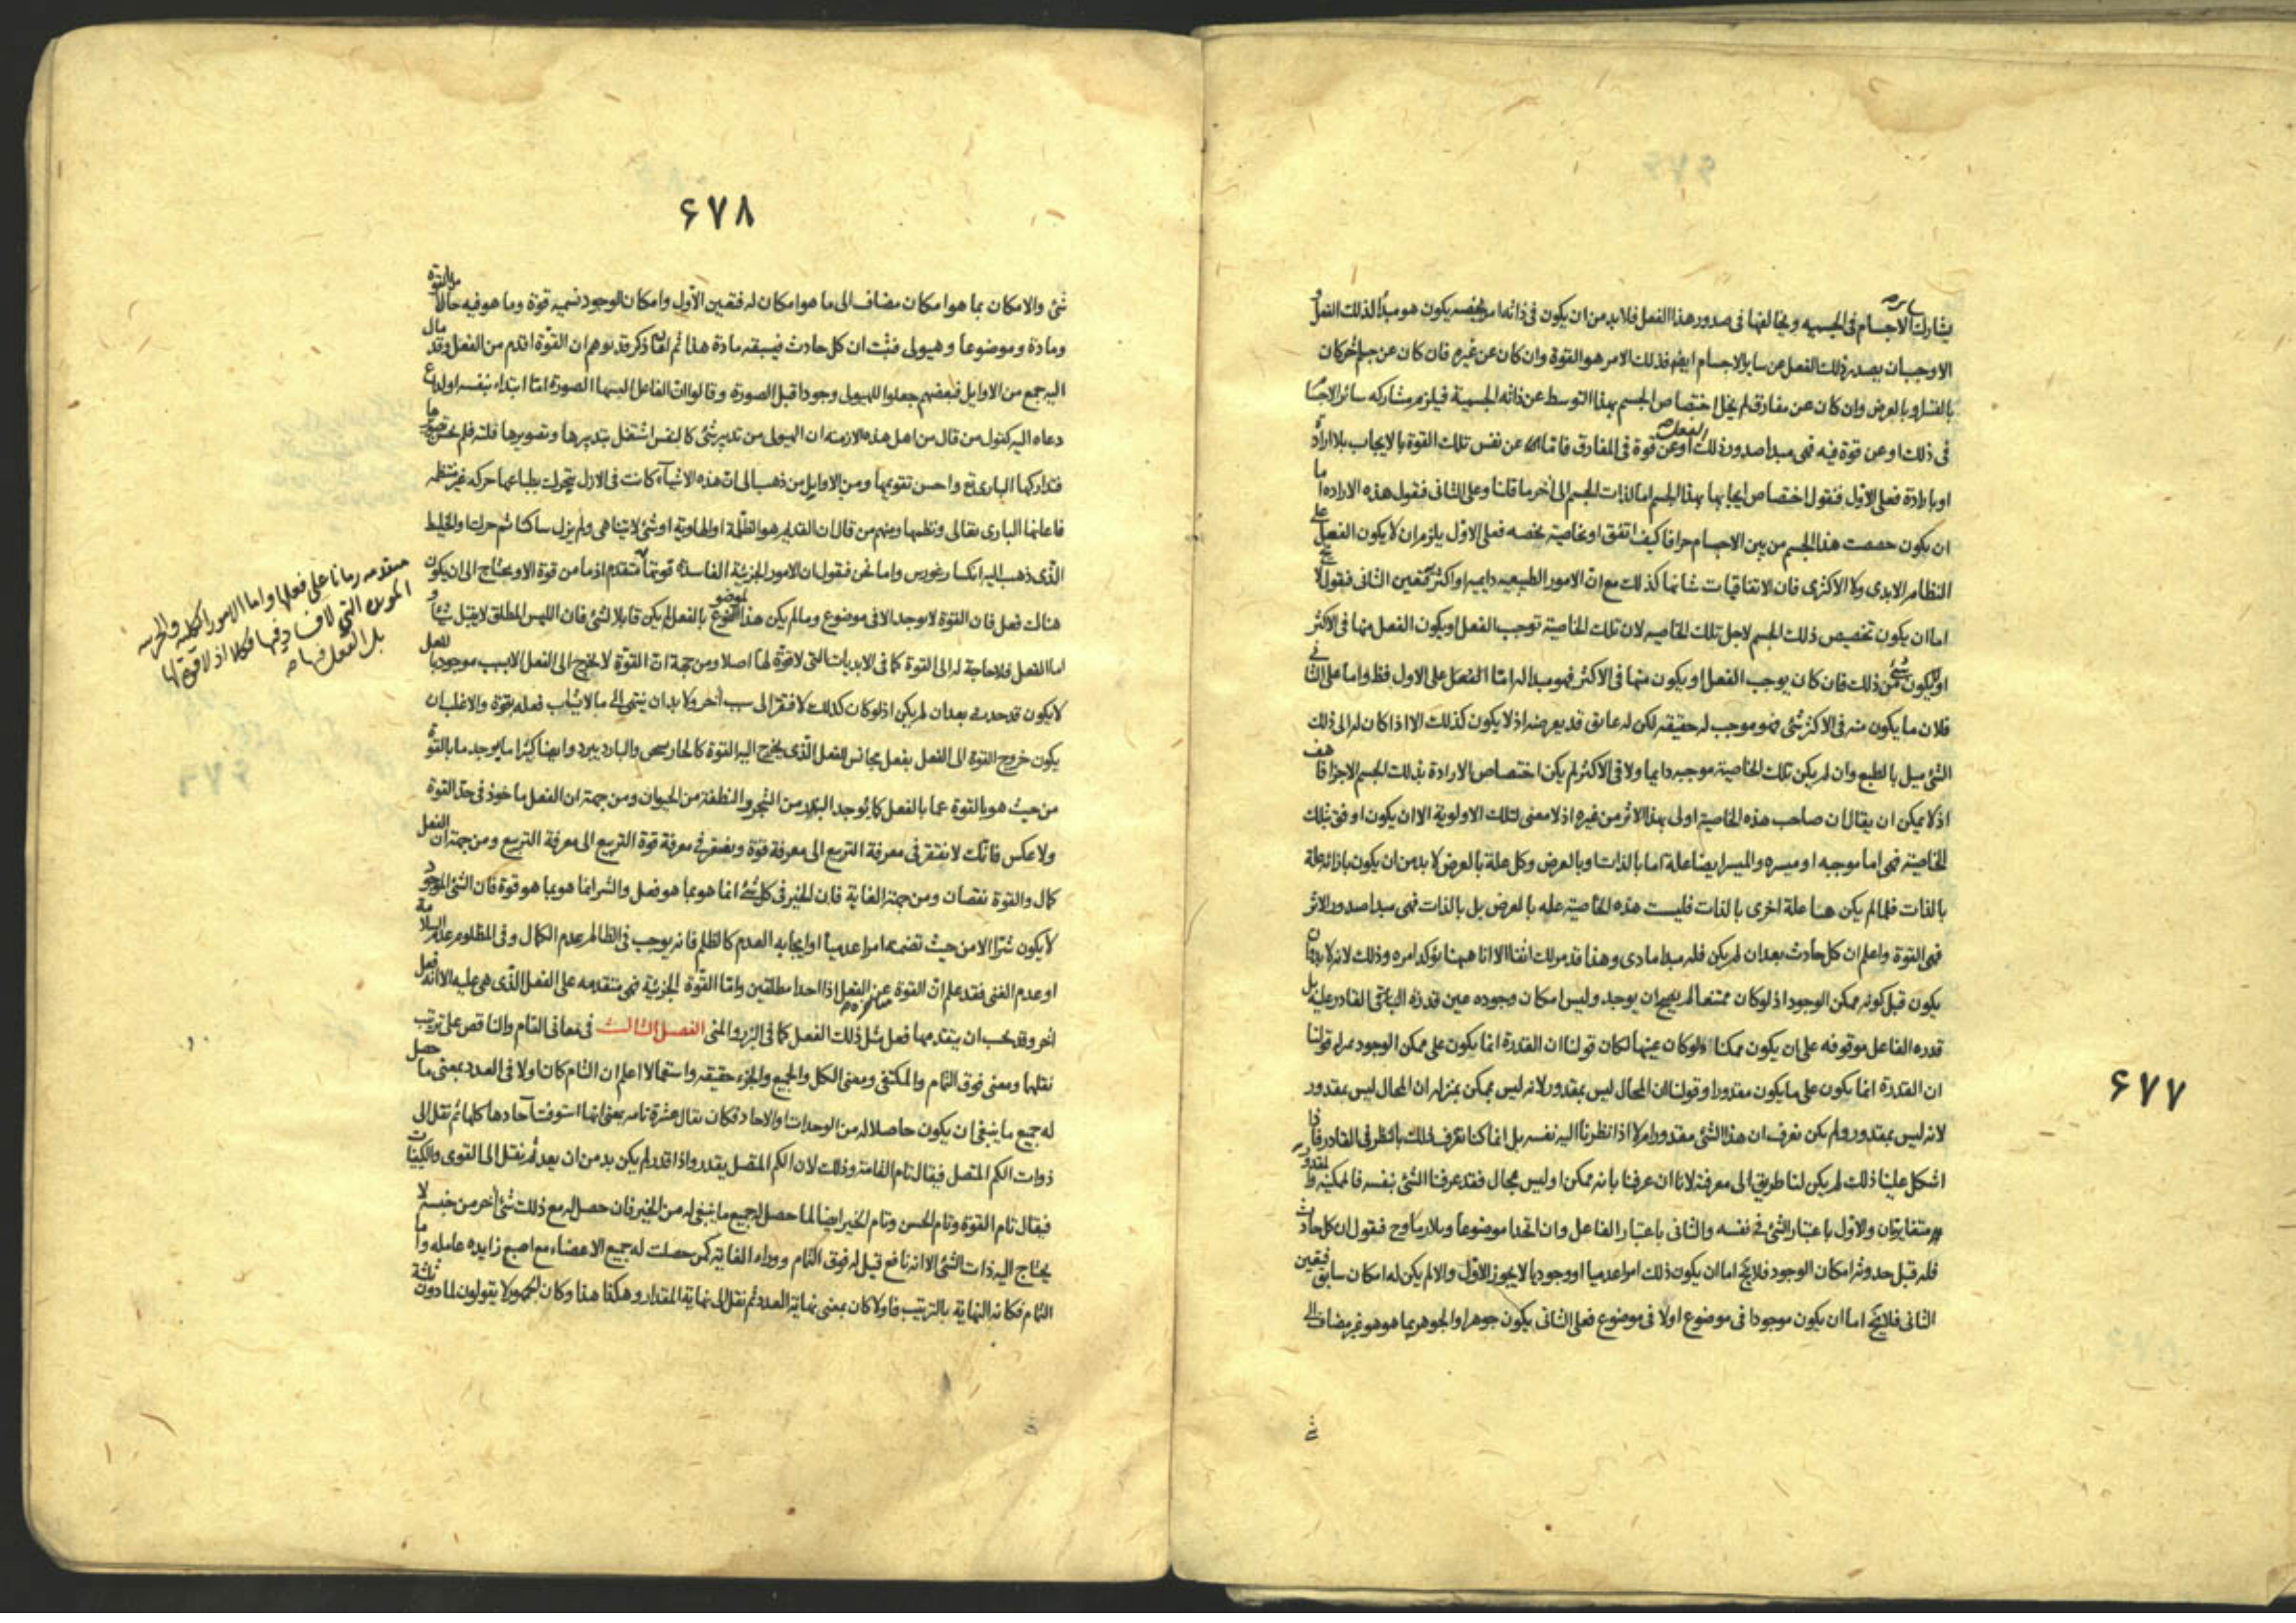 يشارك الاجسام فى الجسميه ويخالفها فى صدور هذا الفعل فلا بد من ان يكون فى ذاته امر يخصه يكون هو مبدأ لذلك الفعل
سايره
الا وجب ان يصدر ذلك الفعل عن ساير الاجسام ايضا فذلك الامر هو القوة وان كان عن غيره فان كان عن جسم آخر كان
بالقسر او بالعرض وان كان عن مفارق لم يخل اختصاص الجسم بهذا التوسط عن ذاته الجسمية فيلزم مشاركه سائر الاجسا
فى ذلك او عن قوة فيه فهى مبدا صدور ذلك الفعل او عن قوة فى المفارق فاما عن نفس تلك القوة بالايجاب بلا ارادة
او بارادة فعلى الاول فنقول اختصاص ايجابها بهذا الجسم اما لذات الجسم الى آخر ما قلنا وعلى الثانى فنقول هذه الاراده اما
ان يكون خصصت هذا الجسم من بين الاجسام جزافا كيف اتفق او بخاصية يخصه فعلى الاول يلزم ان لا يكون الفعل على
النظام الابدى ولا الاكثرى فان الاتفاقيات شانها كذلك مع ان الامور الطبيعيه دايميه او اكثر فتعين الثانى فنقول لا يخ
اما ان يكون تخصيص ذلك الجسم لاجل تلك الخاصيه لان تلك الخاصية توجب الفعل او يكون الفعل منها فى الاكثر
او لا يكون شئ من ذلك فان كان يوجب الفعل او يكون منها فى الاكثر فهو مبدا له اما الفعل على الاول فظ واما على الثانى
فلان ما يكون منه فى الاكثر شئ فهو موجب له حقيقه لكن له عايق قد يعرضه اذ لا يكون كذلك الا اذا كان له الى ذلك
الشئ ميل بالطبع وان لم يكن تلك الخاصية موجبه دايما ولا فى الاكثر لم يكن اختصاص الارادة بذلك الجسم الا جزافا هف
اذ لا يمكن ان يقال ان صاحب هذه الخاصية اولى بهذا الاثر من غيره اذ لا معنى لتلك الاولوية الا ان يكون اوفق بتلك
الخاصية فهى اما موجبه او ميسره والميسر ايضا علة اما بالذات او بالعرض وكل علة بالعرض لا بد من ان يكون بازائه علة
بالذات فلما لم يكن هنا علة اخرى بالذات فليست هذه الخاصية عله بالعرض بل بالذات فهى مبدا صدور الاثر
فهى القوة واعلم ان كل حادث بعد ان لم يكن فله مبدا مادى وهذا قد مر لك آنفا الا انا ههنا نؤكد امره وذلك لانه لا بد وان
يكون قبل كونه ممكن الوجود اذ لو كان ممتنعا لم يصح ان يوجد وليس امكان وجوده عين قدرة القادر عليه بل
قدره الفاعل موقوفه على ان يكون ممكنا ولو كان عينها لكان قولنا ان القدرة انما يكون على ممكن الوجود بمنزله قولنا
ان القدرة انما يكون على ما يكون مقدورا وقولنا ان المحال ليس بمقدور لانه ليس بممكن بمنزله ان المحال ليس بمقدور
لانه ليس بمقدور ولم يكن نعرف ان هذا الشئ مقدور ام لا اذا نظرنا اليه نفسه بل انما كنا نعرف ذلك بالنظر فى القادر فاذا
اشكل علينا ذلك لم يكن لنا طريق الى معرفته لانا ان عرفنا بأنه ممكن او ليس بمحال فقد عرفنا الشئ بنفسه فالممكنية والمقدورية
متغايرتان والاول باعتبار الشئ فى نفسه والثانى باعتبار الفاعل وان اتحدا موضوعا وتلازما وح فنقول ان كل حادث
فله قبل حدوثه امكان الوجود فلا يخ اما ان يكون ذلك امرا عدميا او وجوديا لا يجوز الاول والا لم يكن له امكان سابق فتعين
الثانى فلا يخ اما ان يكون موجودا فى موضوع او لا فى موضوع فعلى الثانى يكون جوهرا والجوهر بما هو هو غير مضاف الى
شئ
۶۷۷
۶۷۸
شئ والامكان بما هو امكان مضاف الى ما هو امكان له فتعين الاول وامكان الوجود نسميه قوة وما هو فيه حاملا للقوة
ومادة وموضوعا وهيولى فثبت ان كل حادث فيسبقه مادة هذا ثم لعل ما ذكر قد يوهم ان القوة اقدم من الفعل وقد مال
اليه جمع من الاوايل فبعضهم جعلوا للهيولى وجودا قبل الصورة وقالوا ان الفاعل البسها الصورة اما ابتداء بنفسه او لداع
دعاه اليه كقول من قال من اهل هذه الازمنة ان الهيولى من تدبير شئ كالنفس اشتغل بتدبيرها وتصويرها فلته فلم يحسن تصويرها
فتداركها البارى تع واحسن تقويمها ومن الاوايل من ذهب الى ان هذه الاشياء كانت فى الازل يتحرك بطباعها حركه غير منتظمه
فاعانها البارى تعالى ونظمها ومنهم من قال ان القديم هو الظلمة او الهاوية او شئ لا يتناهى ولم يزل ساكنا ثم حرك والخليط
الذى ذهب اليه انكساغورس واما نحن فنقول ان الامور الجزئية الفاسدة قوتها متقدم اذ ما من قوة الا ويحتاج الى ان يكون
متقدمه زمانا على فعلها واما الامور الكليه والجزئيه
المؤبده التى لا فساد فيها فكلا اذ لا قوة لها
بل الفعل فيها صح
هناك فعل فان القوة لا يوجد الا فى موضوع وما لم يكن هذا الموضوع بالفعل لم يكن قابلا لشئ فان الليس المطلق لا يقبل شيئا و
اما الفعل فلا حاجة له الى القوة كما فى الابديات التى لا قوة لها اصلا ومن جهة ان القوة لا يخرج الى الفعل الا بسبب موجود بالفعل
لا يكون قد حدث بعد ان لم يكن اذ لو كان كذلك لافتقر الى سبب آخر ولا بد ان ينتهى الى ما لا يشاب فعله بقوة والاغلب ان
يكون خروج القوة الى الفعل بفعل يجانس للفعل الذى يخرج اليه القوة كالحار يسخن والبارد يبرد وايضا كثيرا ما يوجد ما بالقوة
من حيث هو بالقوة عما بالفعل كما يوجد البذر من الشجر والنطفة من الحيوان ومن جهة ان الفعل ماخوذ فى حد القوة
ولا عكس فانك لا نفتقر فى معرفة التربيع الى معرفة قوة ونفتقر فى معرفة قوة التربيع الى معرفة التربيع ومن جهة ان الفعل
كمال والقوة نقصان ومن جهة الغاية فان الخير فى كل شئ انما هو بما هو فعل والشر انما هو بما هو قوة فان الشئ الموجود
لا يكون شرا الا من حيث تضمنه امرا عدميا او ايجابه العدم كالظلم فانه يوجب فى الظالم عدم الكمال وفى المظلوم عدم السلامة
او عدم الغنى فقد علم ان القوة متاخره عن الفعل اذا اخذا مطلقين واما القوة الجزئية فهى متقدمه على الفعل الذى هى عليه الا انه فعل
آخر وقد يجب ان يتقدمها فعل مثل ذلك الفعل كما فى البزر والمنى الفصل الثالث فى معانى التام والناقص على ترتيب
نقلها ومعنى فوق التمام والمكتفى ومعنى الكل والجميع والجزء حقيقه واستعمالا اعلم ان التام كان اولا فى العدد بمعنى ما حصل
له جميع ما ينبغى ان يكون حاصلا له من الوحدات والاحاد فكان يقال عشرة تامه بمعنى انها استوفت آحادها كلها ثم نقل الى
ذوات الكم المتصل فيقال تام القامة وذلك لان الكم المتصل يقدر واذا قدر لم يكن بد من ان يعد ثم نقل الى القوى والكيفيات
فيقال تام القوة وتام الحسن وتام الخير ايضا لما حصل له جميع ما ينبغى له من الخير فان حصل له مع ذلك شئ آخر من جنسه لا
يحتاج اليه ذات الشئ الا انه نافع قيل له فوق التمام ووراء الغاية كمن حصلت له جميع الاعضاء مع اصبع زايده عامله واما
التمام فكانه النهاية بالترتيب فاولا كان بمعنى نهاية العدد ثم نقل الى نهاية المقدار وهكذا هذا وكان الجمهور لا يقولون لما دون ثلثة